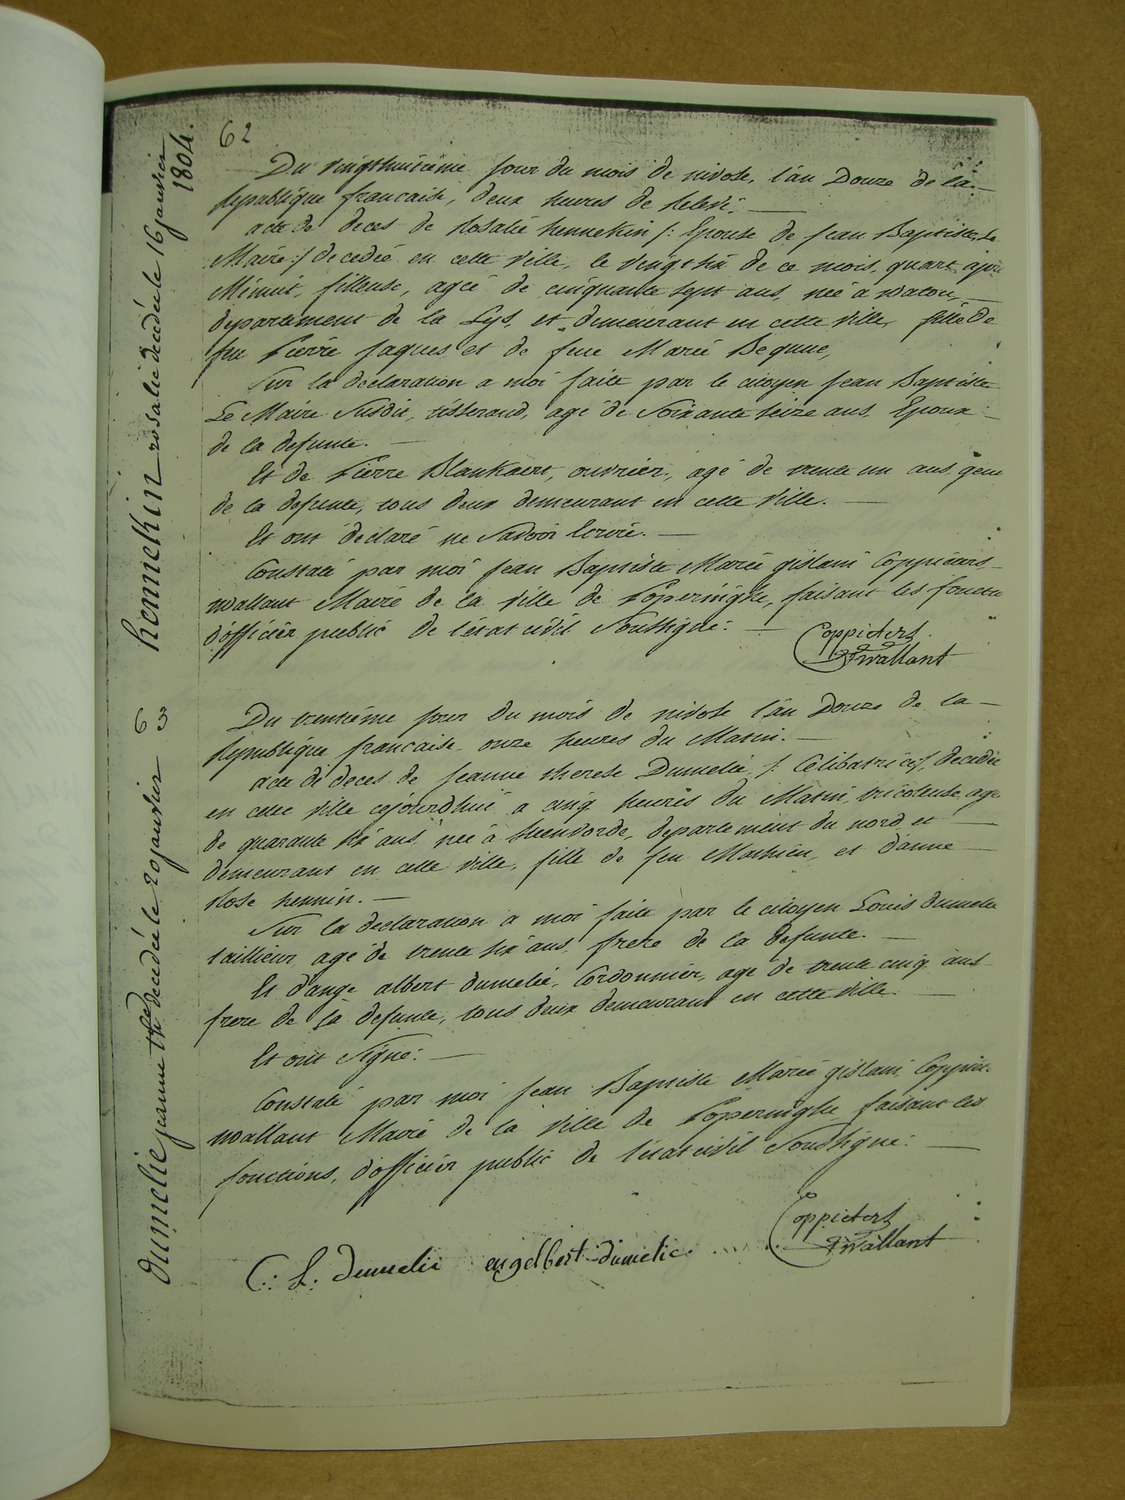 62
hennekin rosalie decedée le 16 janvier 1804.
Du vingthuitième jour du mois de nivose, l'an Douze de la
République francaise, deux heures de relevé.
acte de deces de Rosalie hennekin /: Epouse de Jean Baptiste Le
Maire :/ decedée en cette ville, le vingt six de ce mois, quart après
Minuit, filleuse, agée de cinquante sept ans, née à watou,
departement de la Lys, et demeurant en cette ville, fille de
feu Pierre Jaques et de feue Marie Begune,
Sur la declaration a moi faite par le citoyen Jean Baptiste
Le Maire susdit, tisserand, agé de Soixante seize ans, Epoux
de la defunte.
Et de Pierre Blankaert, ouvrier, agé de trente un ans, gen
de la defunte, tous deux demeurant en cette ville.
Et ont declaré ne Savoir Ecrire.
Constaté par moi Jean Baptiste Marie gislain Coppieters
wallant Maire de la ville de Poperinghe, faisant les foncti
d'officier public de l'état civil Soussigné.
Coppieters
Twallant
63
dumelie jeanne thce decedée le 20 janvier
Du trentième jour du mois de nivose l'an Douze de la
République francaise onze heures du Matin.
acte de deces de Jeanne therese Dumelié /: Celibatrice :/, decedée
en cette ville cejourdhui a cinq heures du Matin, tricoteuse, age
de quarante six ans, née à Steenvorde, departement du nord et
demeurant en cette ville, fille de feu Mathieu, et d'anne
Rose hennin.
Sur la declaration a moi faite par le citoyen Louis dumelie
taillieur agé de trente six ans, frere de la defunte.
Et d'ange albert dumelié, Cordonnier, agé de trente cinq ans
frere de la defunte, tous deux demeurant en cette ville.
Et ont Signé.
Constaté par moi Jean Baptiste Marie gislain Coppie
wallant Maire de la ville de Poperinghe faisant les
fonctions, d'officier public de l'état civil Soussigné.
Coppieters
Twallant
C: L: dumelie engelbert dumelie